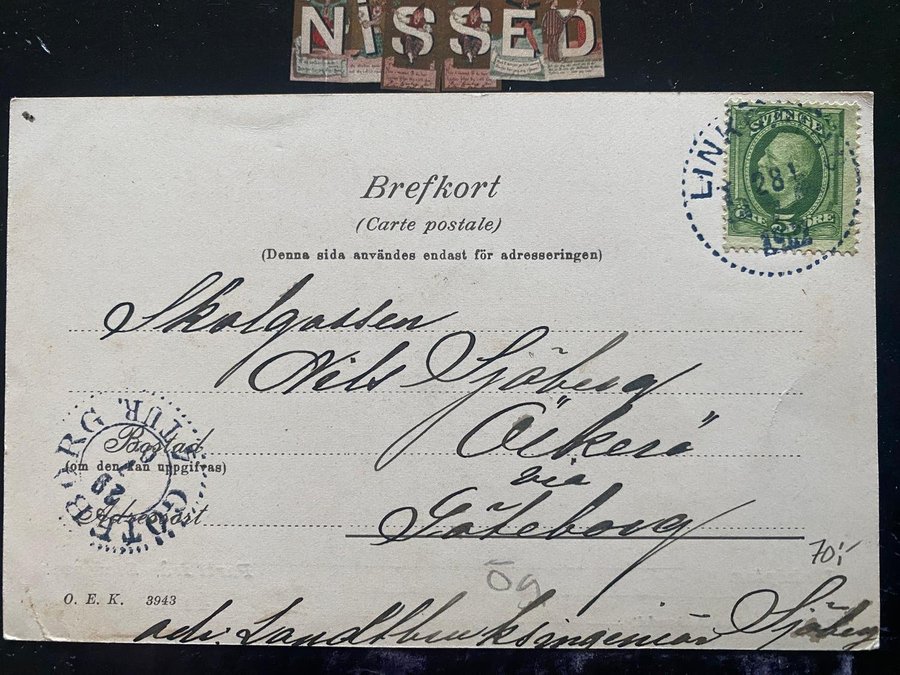 NISSED
Brefkort
(Carte postale)
(Denna sida användes endast för adresseringen)
SVERIGE
5
ÖRE
LINK
28 1
1902
Skolgossen
Nils Sjöberg
Öckerö
via
Göteborg
GÖTEBORG
TUR.
29
Bostad
(om den kan uppgifvas)
Adresspost
70:-
Ög
O. E. K. 3943
adr. Landtbruksingeniör Sjöberg